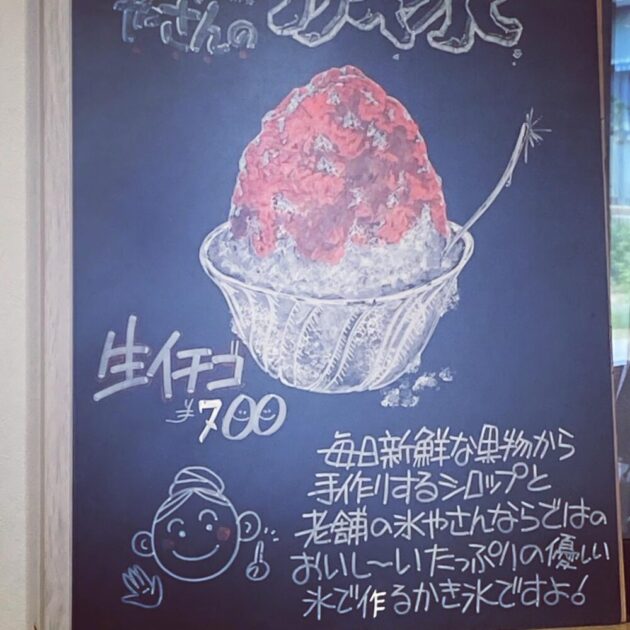 生イチゴ
¥700
毎日新鮮な果物から
手作りするシロップと
老舗の氷やさんならではの
おいし〜いたっぷりの優しい
氷で作るかき氷ですよ!